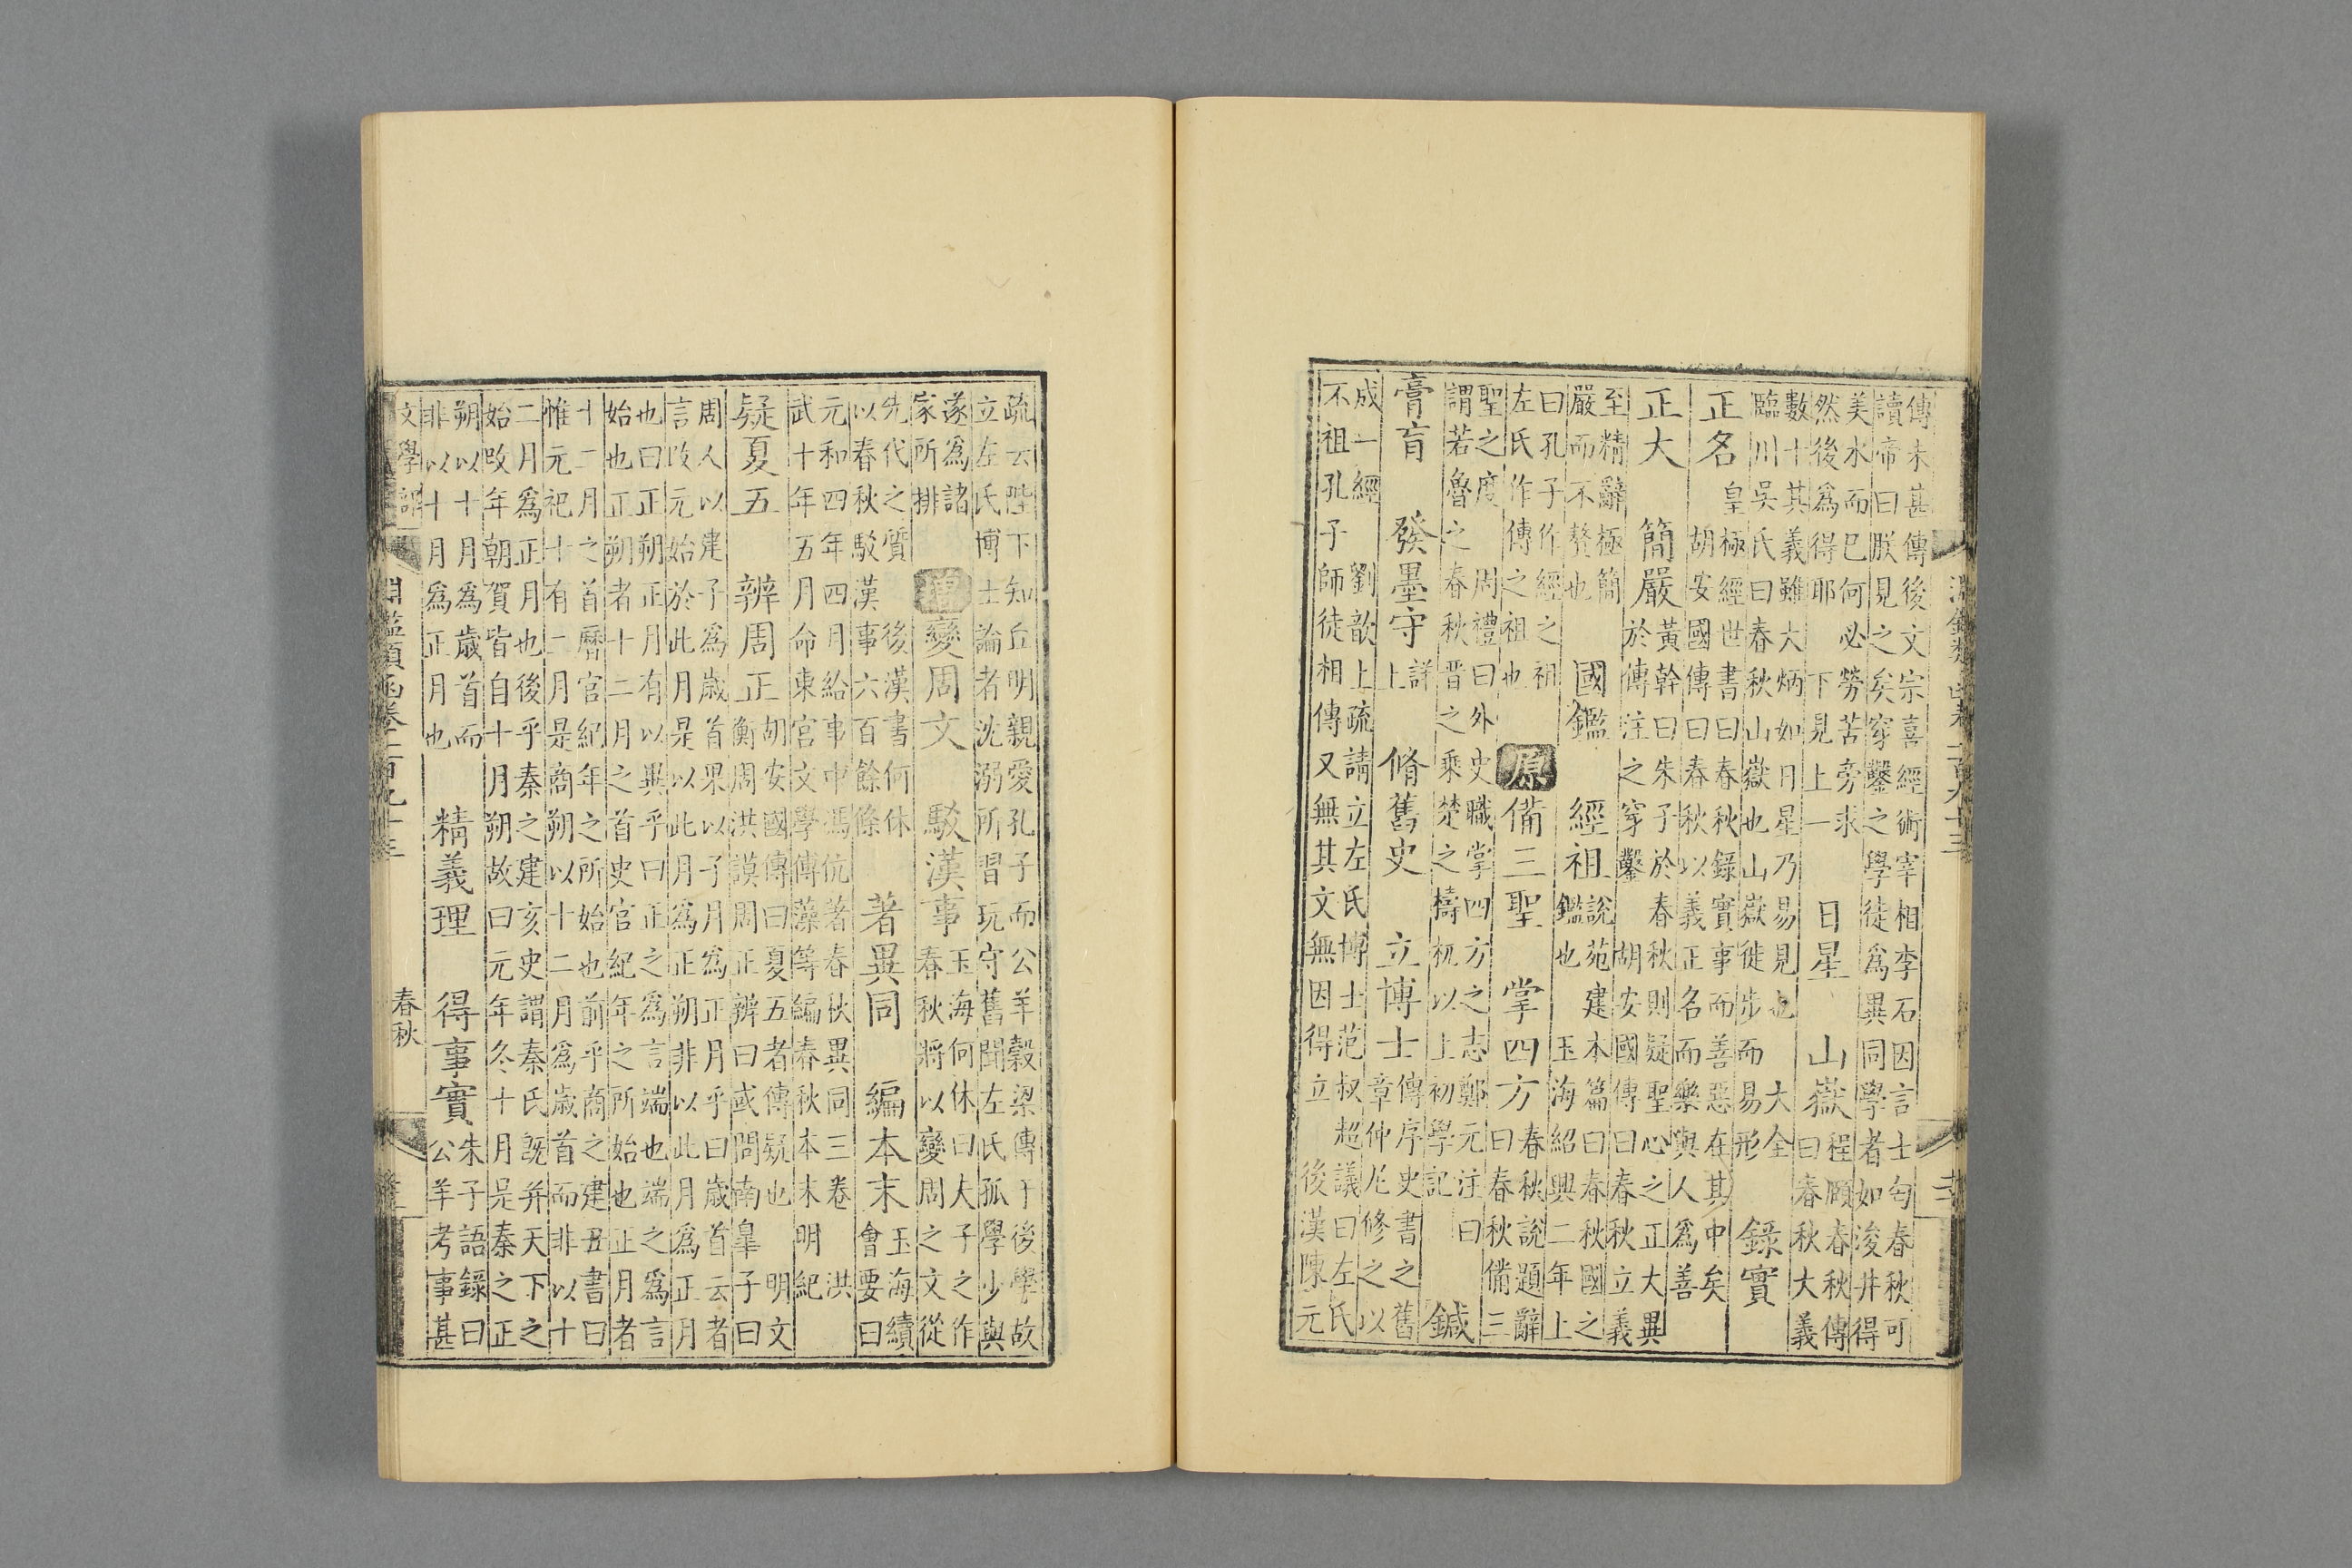 傳未甚傳後文宗喜經術宰相李石因言士匄春秋可
讀帝曰朕見之矣穿鑿之學徒為異同學者如浚井得
美水而已何必勞苦旁求
然後為得耶 下見上一
日星 山嶽
程頤春秋傳
曰春秋大義
數十其義雖大炳如日星乃易見也 大全
臨川吳氏曰春秋山嶽也山嶽徙步而易形
錄實
正名
皇極經世書曰春秋錄實事而善惡在其中矣
胡安國傳曰春秋以義正名而樂與人為善
正大 簡嚴
黃幹曰朱子於春秋則疑聖心之正大異
於傳注之穿鑿 胡安國傳曰春秋立義
至精辭極簡
嚴而不贅也
國鑑 經祖
說苑建本篇曰春秋國之
鑑也 玉海紹興二年上
曰孔子作經之祖
左氏作傳之祖也
原 備三聖 掌四方
春秋說題辭
曰春秋備三
聖之度 周禮曰外史職掌四方之志鄭元注曰
謂若魯之春秋晉之乘楚之檮杌以上初學記
鍼
膏肓 發墨守
詳
上
脩舊史 立博士
傳序史書之舊
章仲尼修之以
成一經 劉歆上疏請立左氏博士范叔超議曰左氏
不祖孔子師徒相傳又無其文無因得立 後漢陳元
疏云陛下知丘明親愛孔子而公羊穀梁傳于後學故
立左氏博士論者沈溺所習玩守舊聞左氏孤學少與
遂為諸
家所排
增 變周文 駁漢事
玉海何休曰大子之作
春秋將以變周之文從
先代之質 後漢書何休
以春秋駁漢事六百餘條
著異同 編本末
玉海續
會要曰
元和四年四月給事中馮伉著春秋異同三卷 洪
武十年五月命東宮文學傅藻等編春秋本末 明紀
疑夏五 辨周正
胡安國傳曰夏五者傳疑也 明文
衡周洪謨周正辨曰或問南皐子曰
周人以建子為歲首果以子月為正月乎曰歲首云者
言改元始於此月是以此月為正朔非以此月為正月
也曰正朔正月有以異乎曰正之為言端也端之為言
始也正朔者十二月之首史官紀年之所始也正月者
十二月之首曆官紀年之所始也前乎商之建丑書曰
惟元祀十有二月是商朔以十二月為歲首而非以十
二月為正月也後乎秦之建亥史謂秦氏既并天下之
始改年朝賀皆自十月朔故曰元年冬十月是秦之正
朔以十月為歲首而
非以十月為正月也
精義理 得事實
朱子語錄曰
公羊考事甚
文學部 淵鑑類函卷一百九十三 春秋